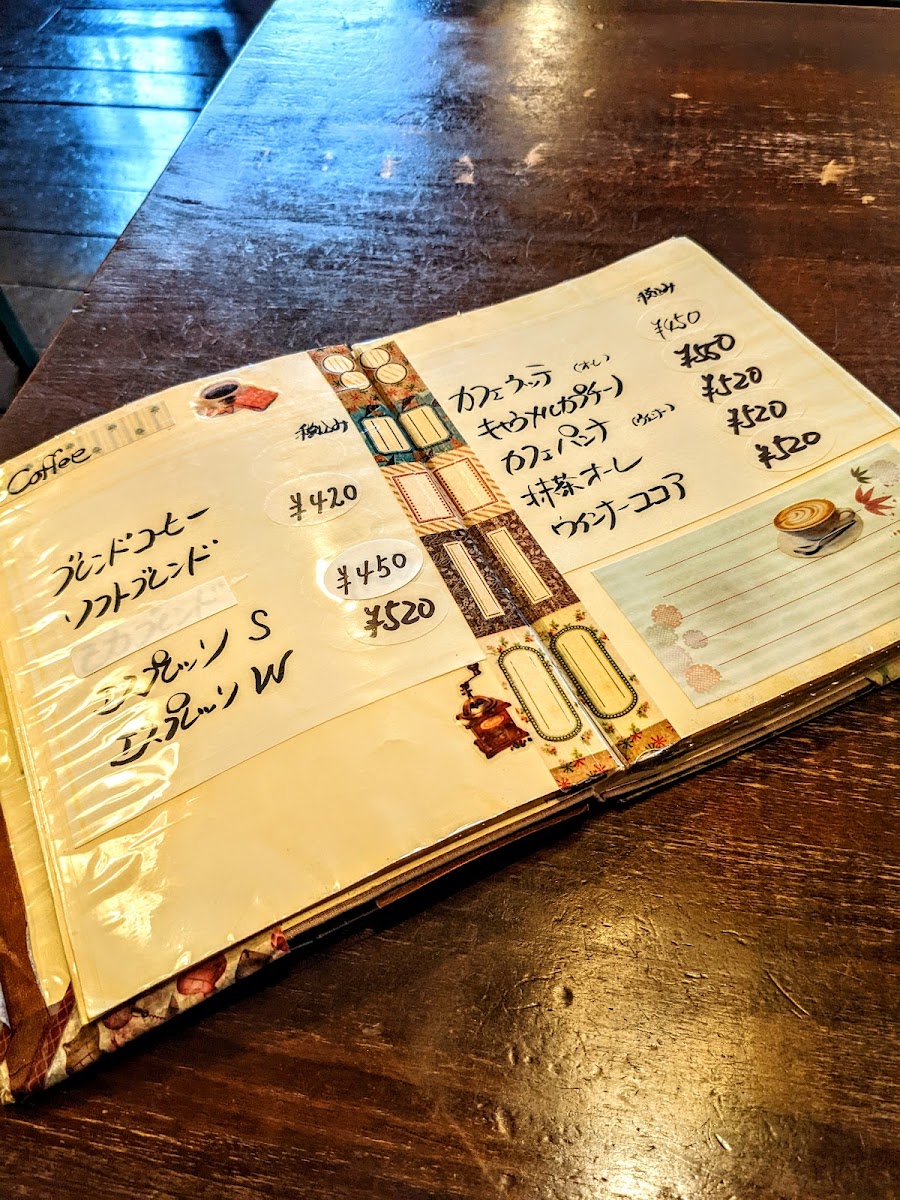 Coffee
税込み
ブレンドコーヒー
¥420
ソフトブレンド
モカブレンド
エスプレッソ S
¥450
エスプレッソ W
¥520
税込み
カフェラッテ (オ・レ)
¥450
キャラメルカプチーノ
¥550
カフェパンナ (ウィンナー)
¥520
抹茶オーレ
¥520
ウィンナーココア
¥520